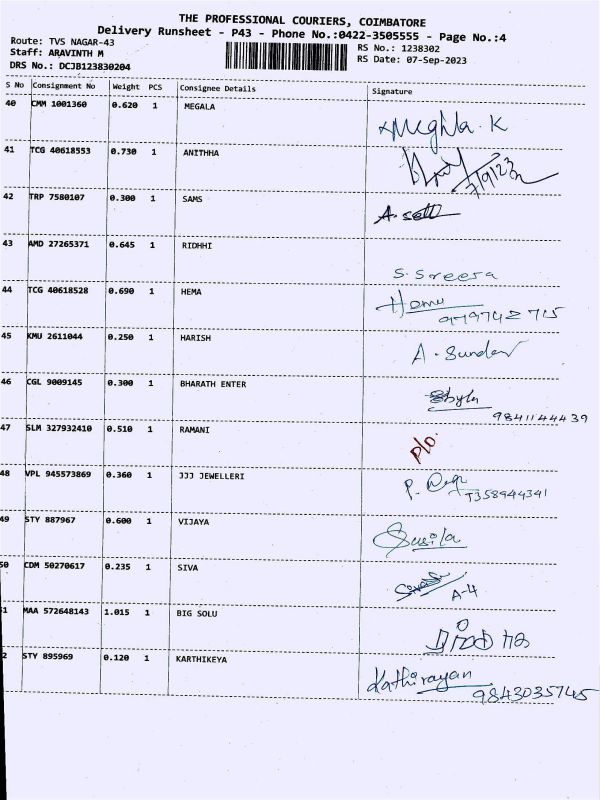 THE PROFESSIONAL COURIERS, COIMBATORE
Delivery Runsheet - P43 - Phone No.:0422-3505555 - Page No.:4
Route: TVS NAGAR-43 RS No.: 1238302
Staff: ARAVINTH M RS Date: 07-Sep-2023
DRS No.: DCJB123830204
S No Consignment No Weight PCS Consignee Details Signature
40 CMM 1001360 0.620 1 MEGALA
Meghla. K
41 TCG 40618553 0.730 1 ANITHHA
7/9/23
42 TRP 7580107 0.300 1 SAMS
43 AMD 27265371 0.645 1 RIDHHI
S. Sreeja
44 TCG 40618528 0.690 1 HEMA
Hema
45 KMU 2611044 0.250 1 HARISH
A. Sundar
46 CGL 9009145 0.300 1 BHARATH ENTER
9841144439
47 SLM 327932410 0.510 1 RAMANI
P/o.
48 VPL 945573869 0.360 1 JJJ JEWELLERI
49 STY 887967 0.600 1 VIJAYA
Susila
50 CDM 50270617 0.235 1 SIVA
A-4
1 MAA 572648143 1.015 1 BIG SOLU
2 STY 895969 0.120 1 KARTHIKEYA
Kathirayan
9843035745